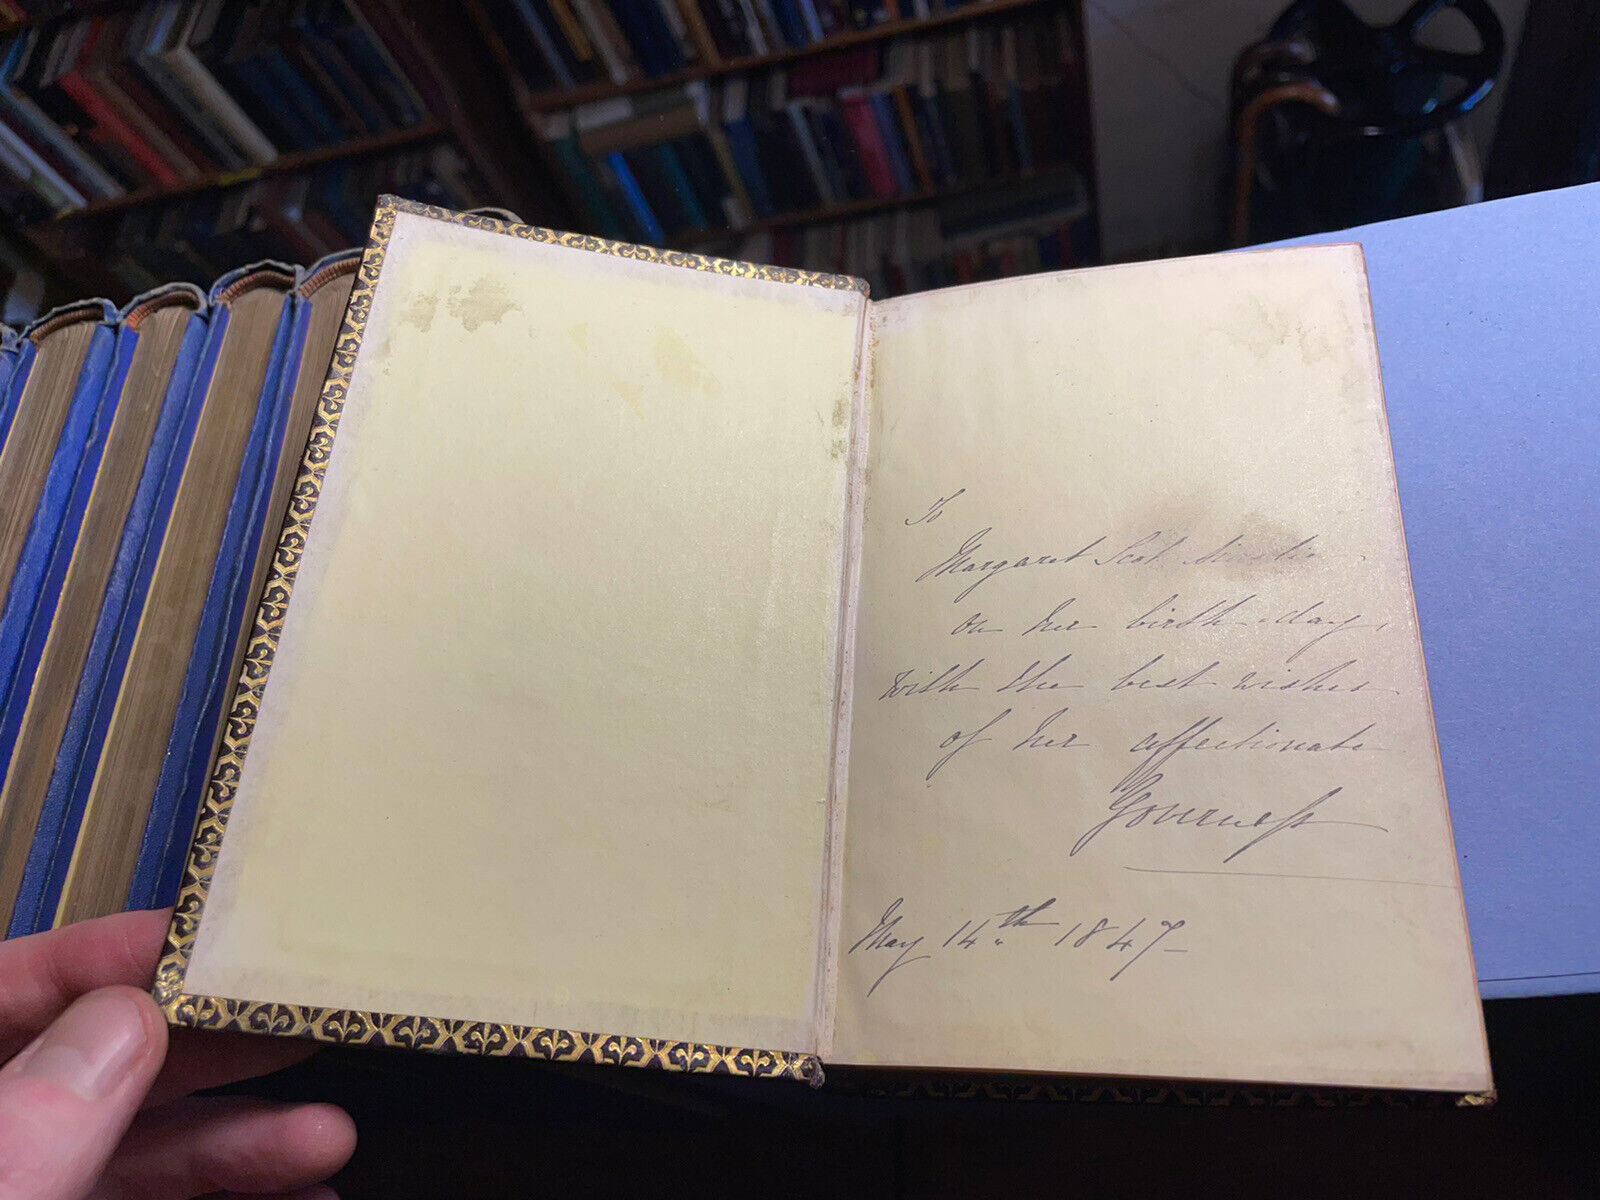 To
Margaret Scot
on her birth-day,
with the best wishes
of her affectionate
Governess
May 14th 1847